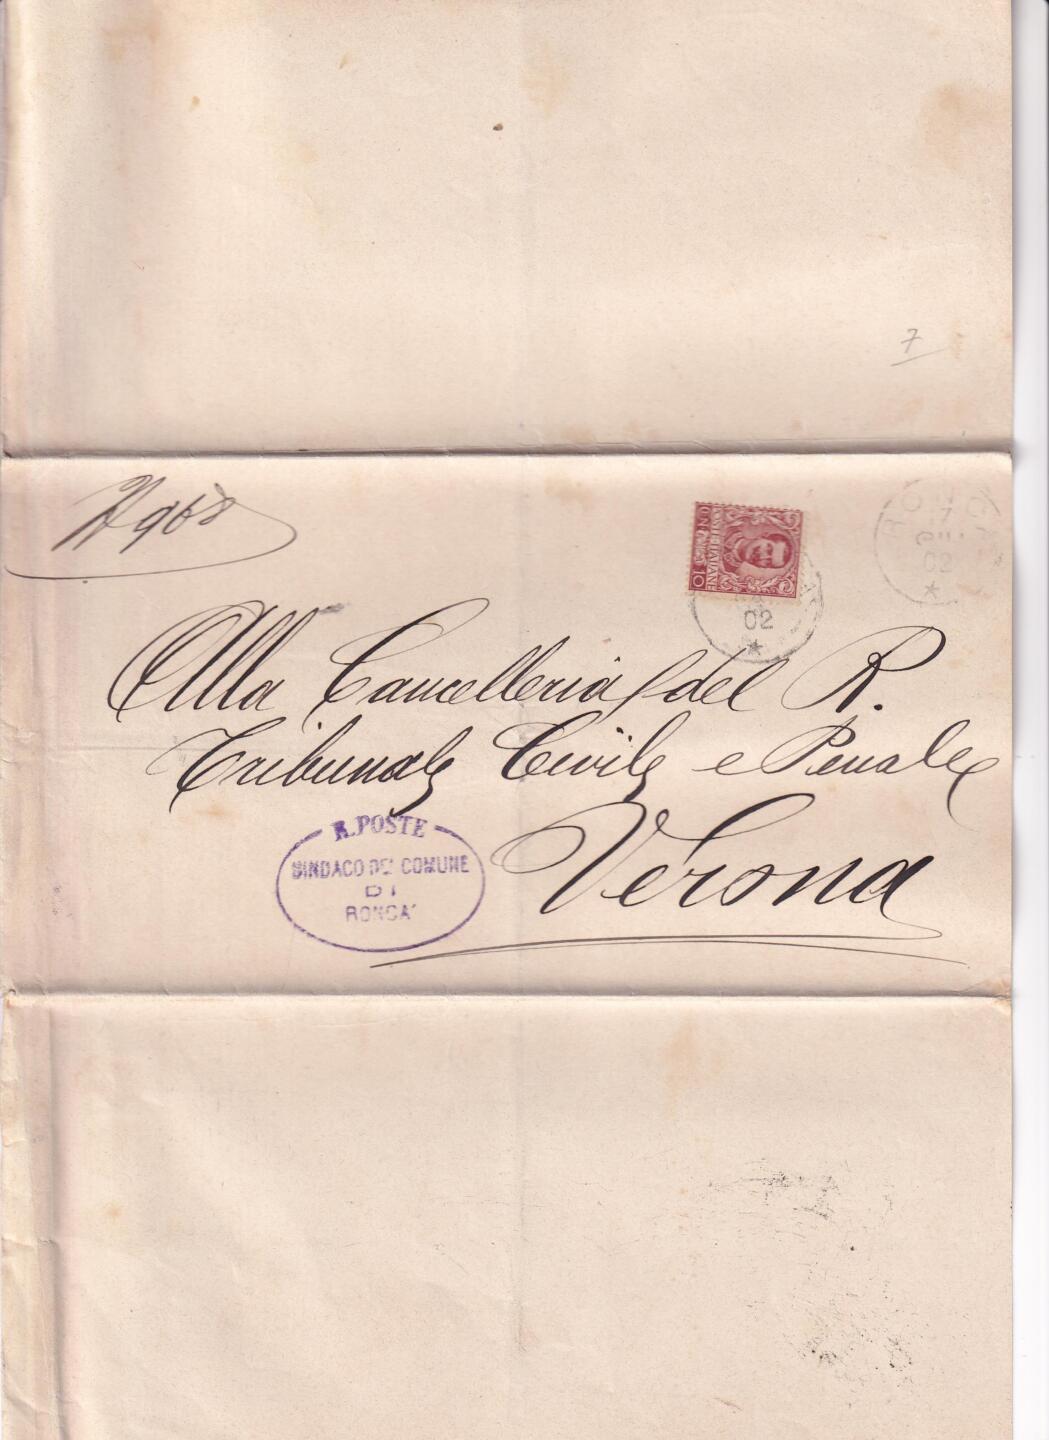 7
N 968
POSTE ITALIANE
10
02
RONCÀ
02
Alla Cancelleria del R.
Tribunale Civile e Penale
Verona
R. POSTE
SINDACO DEL COMUNE
DI
RONCA'